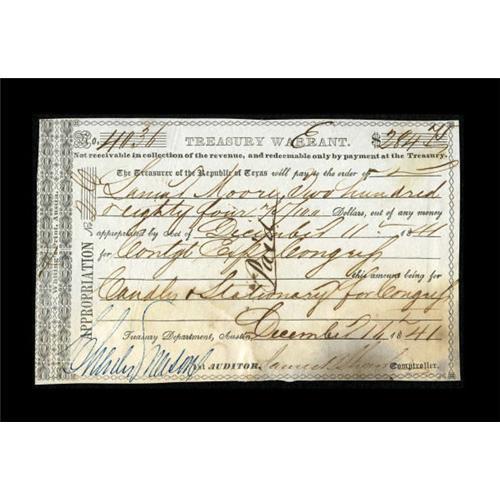 No. 4036 TREASURY WARRANT. $ 284 75
E
Not receivable in collection of the revenue, and redeemable only by payment at the Treasury.
The Treasurer of the Republic of Texas will pay to the order of
James Moore, two hundred
& eighty four 75/100 Dollars, out of any money
appropriated by Act of December 11 1841
for Contgt Exps Congress
this amount being for
Candles & Stationary for Congress
Treasury Department, Austin, December 14 1841
Charles Mason
1st AUDITOR. Comptroller.
APPROPRIATION No.
Paid